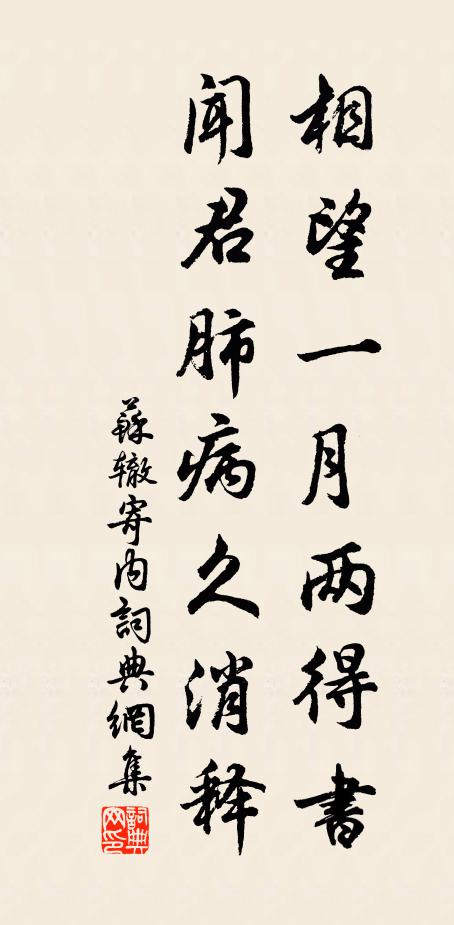 相望一月两得書
闻君肺病久消释
蘇辙寄内詞典網集
詞典网印